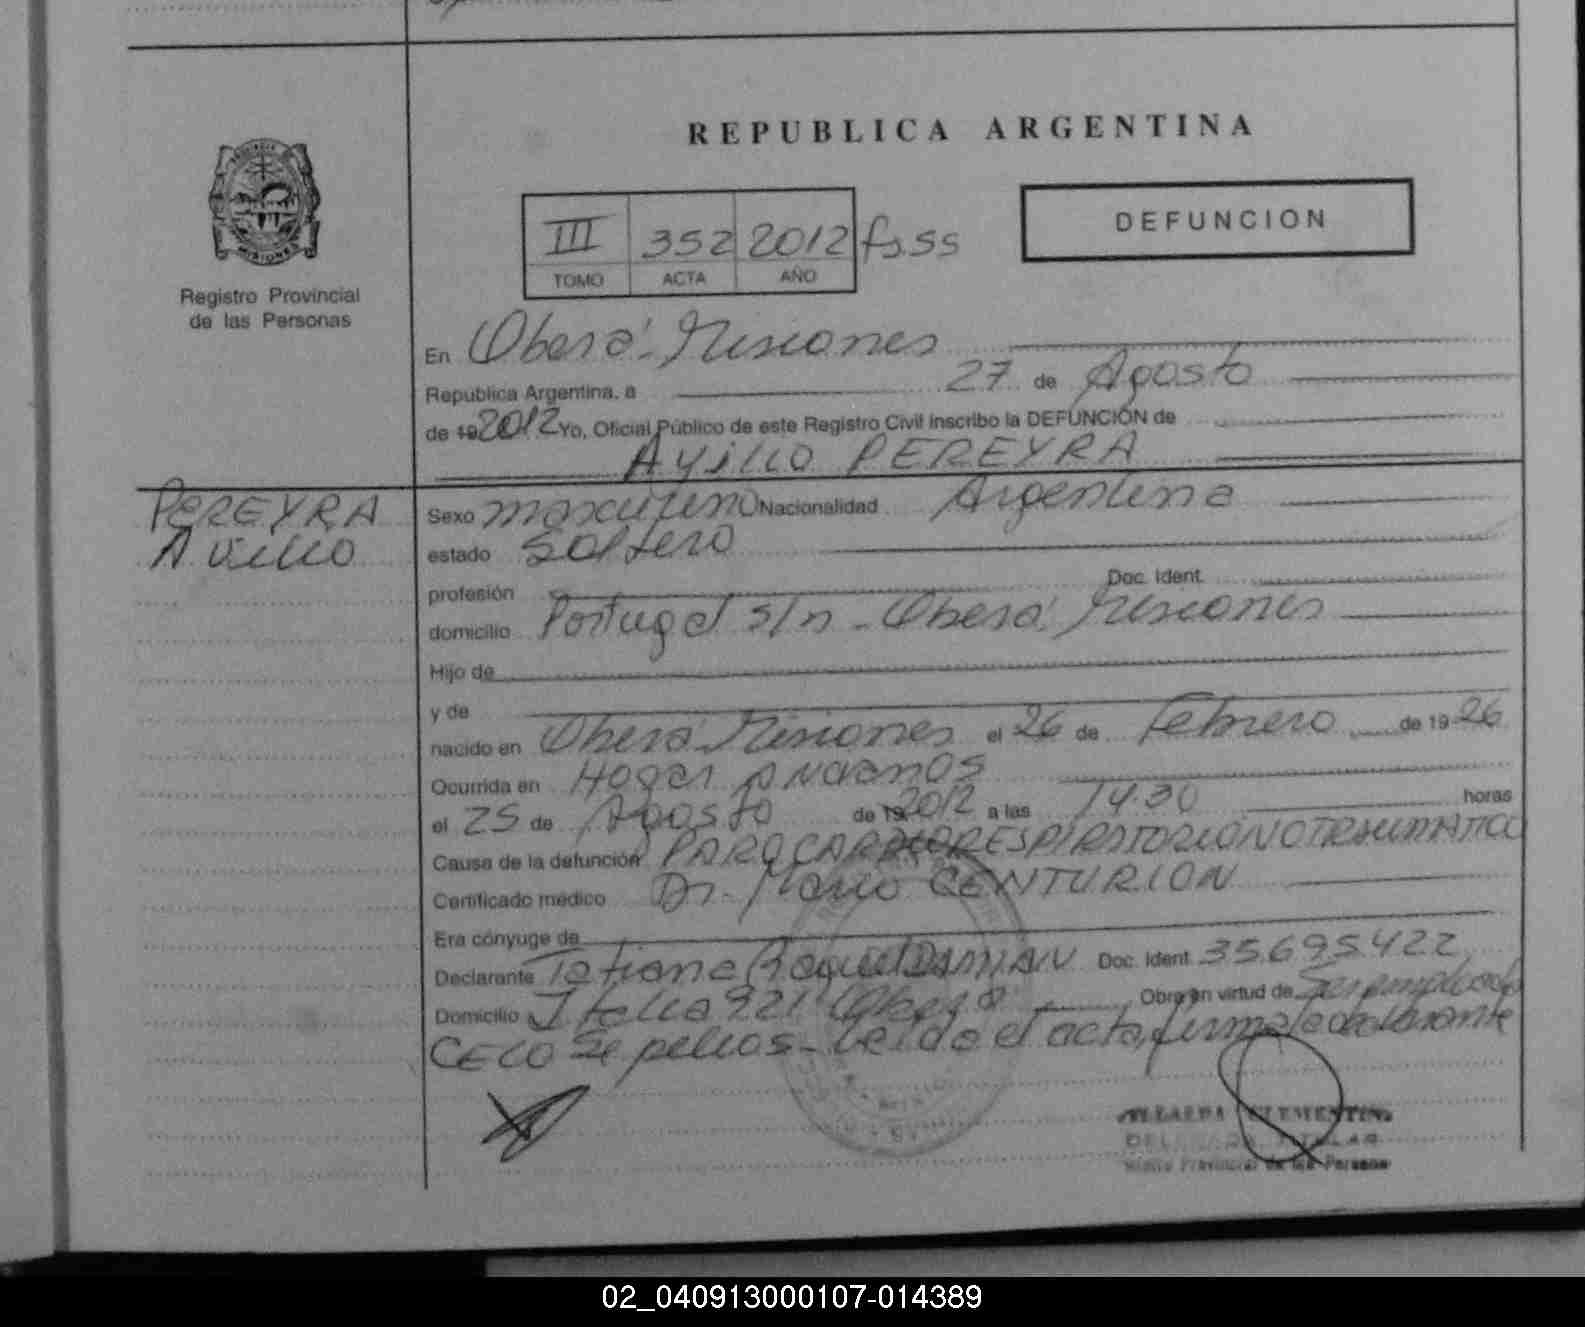 REPUBLICA ARGENTINA
PROVINCIA
MISIONES
Registro Provincial
de las Personas
DEFUNCION
III 352 2012 fs.55
TOMO ACTA AÑO
En Oberá - Misiones
Republica Argentina, a 27 de Agosto
de 19 2012 Yo, Oficial Público de este Registro Civil inscribo la DEFUNCIÓN de
PEREYRA
PEREYRA
Sexo masculino Nacionalidad Argentina
estado Soltero
profesión Doc. Ident.
domicilio Portugal s/n - Oberá, Misiones
Hijo de
y de
nacido en Oberá Misiones el 26 de Febrero de 19 26
Ocurrida en Hogar
el 25 de Agosto de 19 2012 a las 14.30 horas
Causa de la defunción PARO CARDIORESPIRATORIO NO TRAUMATICO
Certificado médico Dr. Mario CENTURION
Era cónyuge de
Declarante Tatiana Raquel DAMIAN Doc. Ident. 35.695.422
Domicilio Italia 921 Oberá Obra en virtud de Ser empleado
CELO Sepelios - Leida el acta, firma la declarante
CLEMENTINA
DELEGADA TITULAR
Provincial de las Personas
02_040913000107-014389